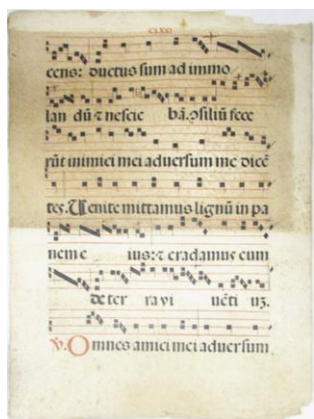 CLXXI
cens: ductus sum ad immo
lan dū ⁊ nescie bā. ꝯsiliū fece
rūt inimici mei adversum me dicē
tes. Venite mittamus lignū in pa
nem e ius: ⁊ eradamus eum
de ter ra vi uēti uꝫ.
℣. Omnes amici mei adversum